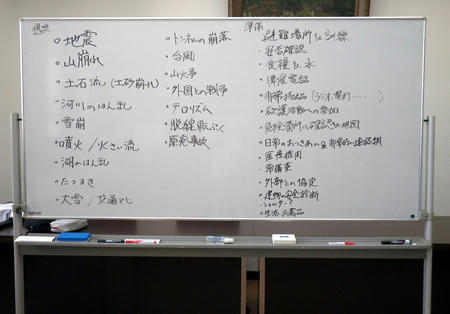 想定
・地震
・山崩れ
・土石流し(土砂崩れ)
・河川のはんらん
・雪崩
・噴火/火さい流
・湖のはんらん
・たつまき
・大雪/交通マヒ
・トンネルの崩落
・台風
・山火事
・外国との戦争
・テロリズム
・脱線転ぷく
・原発事故
準備
・避難場所&訓練
・安否確認
・食糧&水
・衛星電話
・非常持出品(ラジオ、電灯.....)
・救護活動への参加
・危険箇所の確認と地図
・日常のおつきあい&非常時の連絡網
・医療採用
・常備薬
・外部との協定
・建物の安全診断
・シェルター
・生活必需品